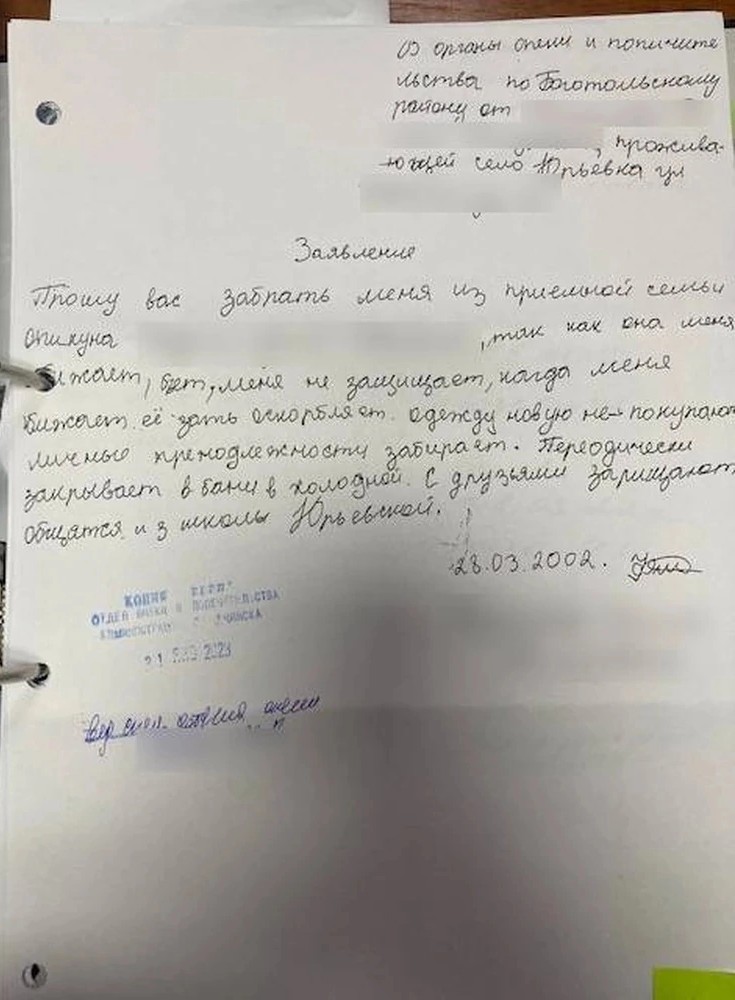 В органы опеки и попичите
льства по Боготольскому
району от
, прожива-
ющей село Юрьевка ул
Заявление
Прошу вас забрать меня из приемной семьи
опикуна , так как она меня
ижает, бет, меня не защищает, когда меня
бижает её зять оскорбляет. одежду новую не покупают
личные пренодлежности забирает. Переодически
закрывает в бани в холодной. С друзьями зарищают
общятся из школы Юрьевской.
28.03.2002.
КОПИЯ ВЕРНА
ОТДЕЛ ОПЕКИ И ПОПЕЧИТЕЛЬСТВА
АДМИНИСТРАЦ АЧИНСКА
21 2023
вед спец. отдела опеки